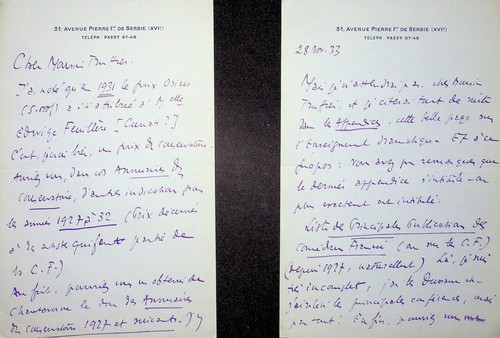 31, AVENUE PIERRE Iᵉʳ DE SERBIE (XVIᵉ)
TÉLÉPH. PASSY 67-48
Cher Monsieur
J'ai noté qu'en 1931 le prix Osiris
(5.000f) a été attribué à Melle
Edwige Feuillère [Cunati ?]
C'est, je crois bien, un prix du conservatoire.
Auriez-vous, dans vos Annuaires du
Conservatoire, d'autres indications pour
les années 1927 à 32 (Prix décernés
à des artistes qui font partie de
la C.F.)
Au fait, pourriez-vous m'obtenir de
le don des Annuaires
du conservatoire 1927 et suivants. J'y
31, AVENUE PIERRE Iᵉʳ DE SERBIE (XVIᵉ)
TÉLÉPH. PASSY 67-48
28 Nov. 33
Mais je n'attendrai pas, cher Monsieur
et je citerai tout de suite
dans les Appendices, cette belle page sur
l'Enseignement dramatique. Et à ce
propos : vous avez pu remarquer que
le dernier appendice s'intitule
plus exactement
Liste des Principales Publications des
Comédiens Français (ou sur la C.F.)
(depuis 1927, naturellement) Là, je suis
très incomplet,
les principales conférences, mais
pas tout ! Enfin, pourriez-vous